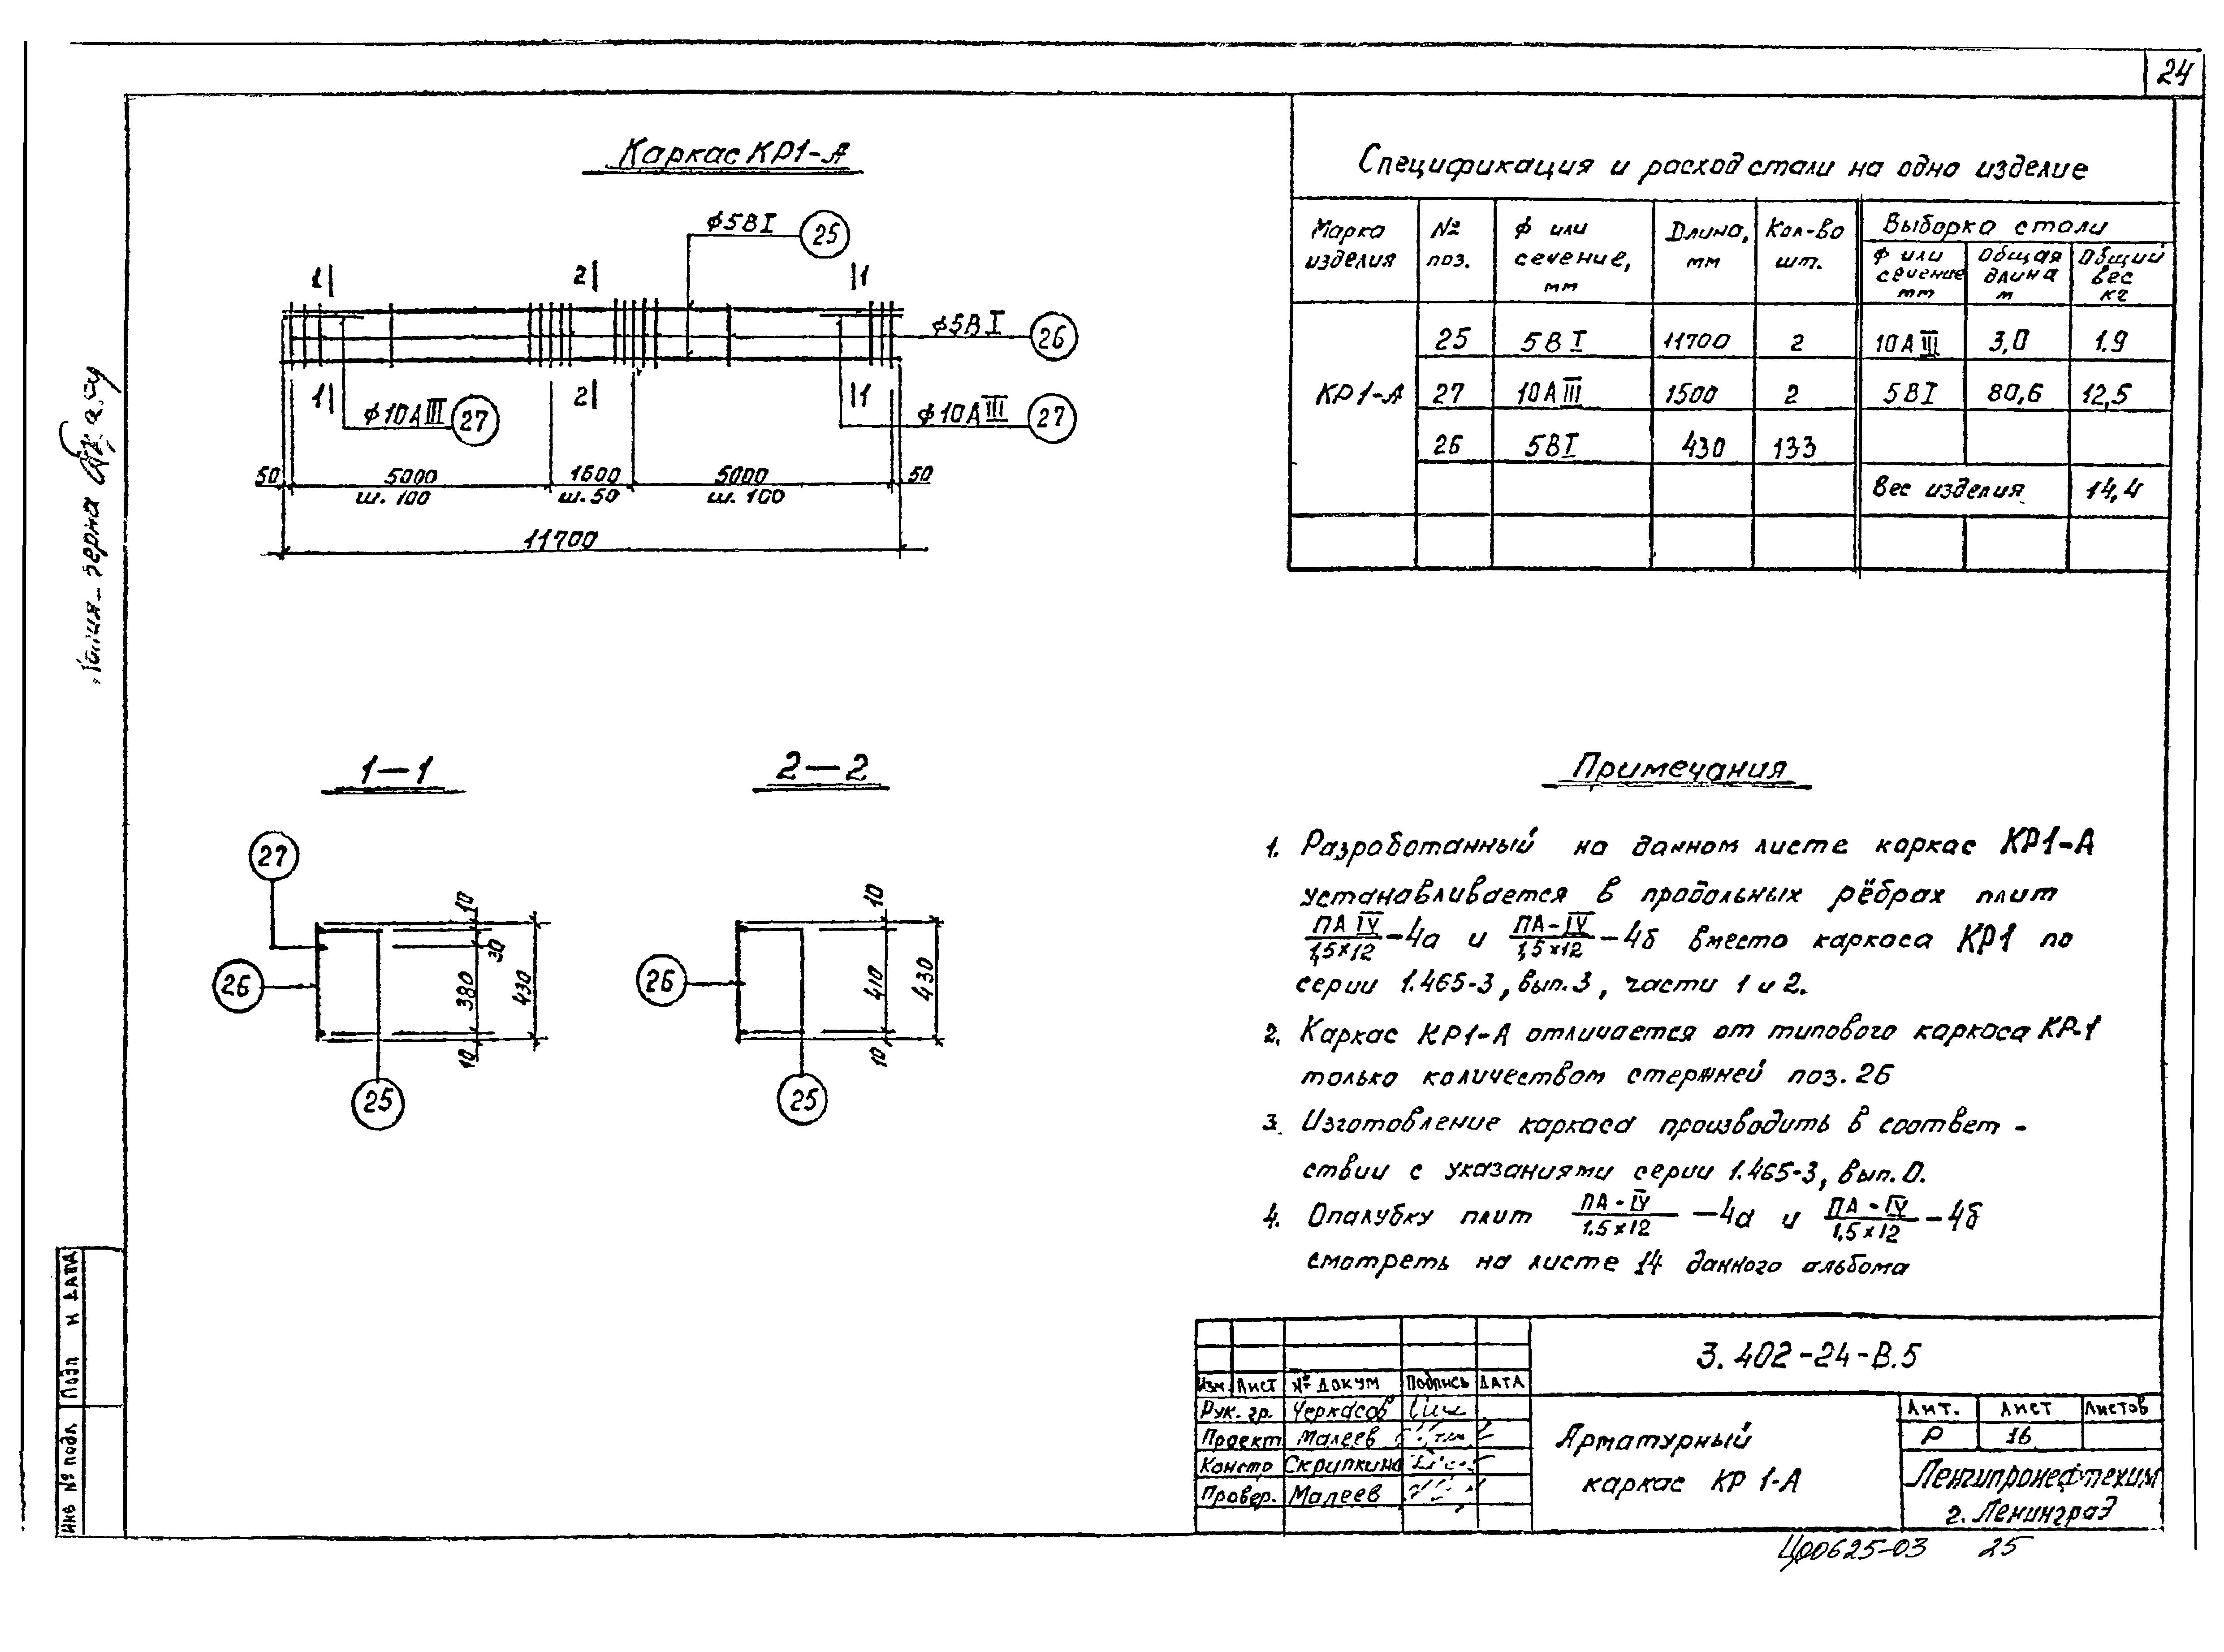 24
Каркас КР1-А
ф5ВI 25
1 2 1
ф5ВI 26
1 2 1
ф10АIII 27
ф10АIII 27
50 5000 1600 5000 50
ш. 100 ш. 50 ш. 100
11700
Спецификация и расход стали на одно изделие
Марка изделия № поз. ф или сечение, мм Длина, мм Кол-во шт. Выборка стали
ф или сечение мм Общая длина м Общий вес кг
КР1-А
25 5ВI 11700 2 10АIII 3,0 1.9
27 10АIII 1500 2 5ВI 80,6 12,5
26 5ВI 430 133
Вес изделия 14,4
1—1
27
26
25
10
30
380
430
10
2—2
26
25
10
410
430
10
Примечания
1. Разработанный на данном листе каркас КР1-А
устанавливается в продольных рёбрах плит
ПА IV/1,5×12 -4а и ПА-IV/1,5×12 -4б вместо каркаса КР1 по
серии 1.465-3, вып.3, части 1 и 2.
2. Каркас КР1-А отличается от типового каркаса КР-1
только количеством стержней поз. 26
3. Изготовление каркаса производить в соответ-
ствии с указаниями серии 1.465-3, вып. 0.
4. Опалубку плит ПА-IV/1.5×12 -4а и ПА-IV/1,5×12 -4б
смотреть на листе 14 данного альбома
3.402-24-В.5
Изм. Лист № докум Подпись Дата
Рук. гр. Черкасов
Проект Малеев
Констр Скрипкина
Провер. Малеев
Арматурный
каркас КР 1-А
Лит. Лист Листов
Р 16
Ленгипронефтехим
г. Ленинград
Ц00625-03 25
Инв № подл Подп и дата